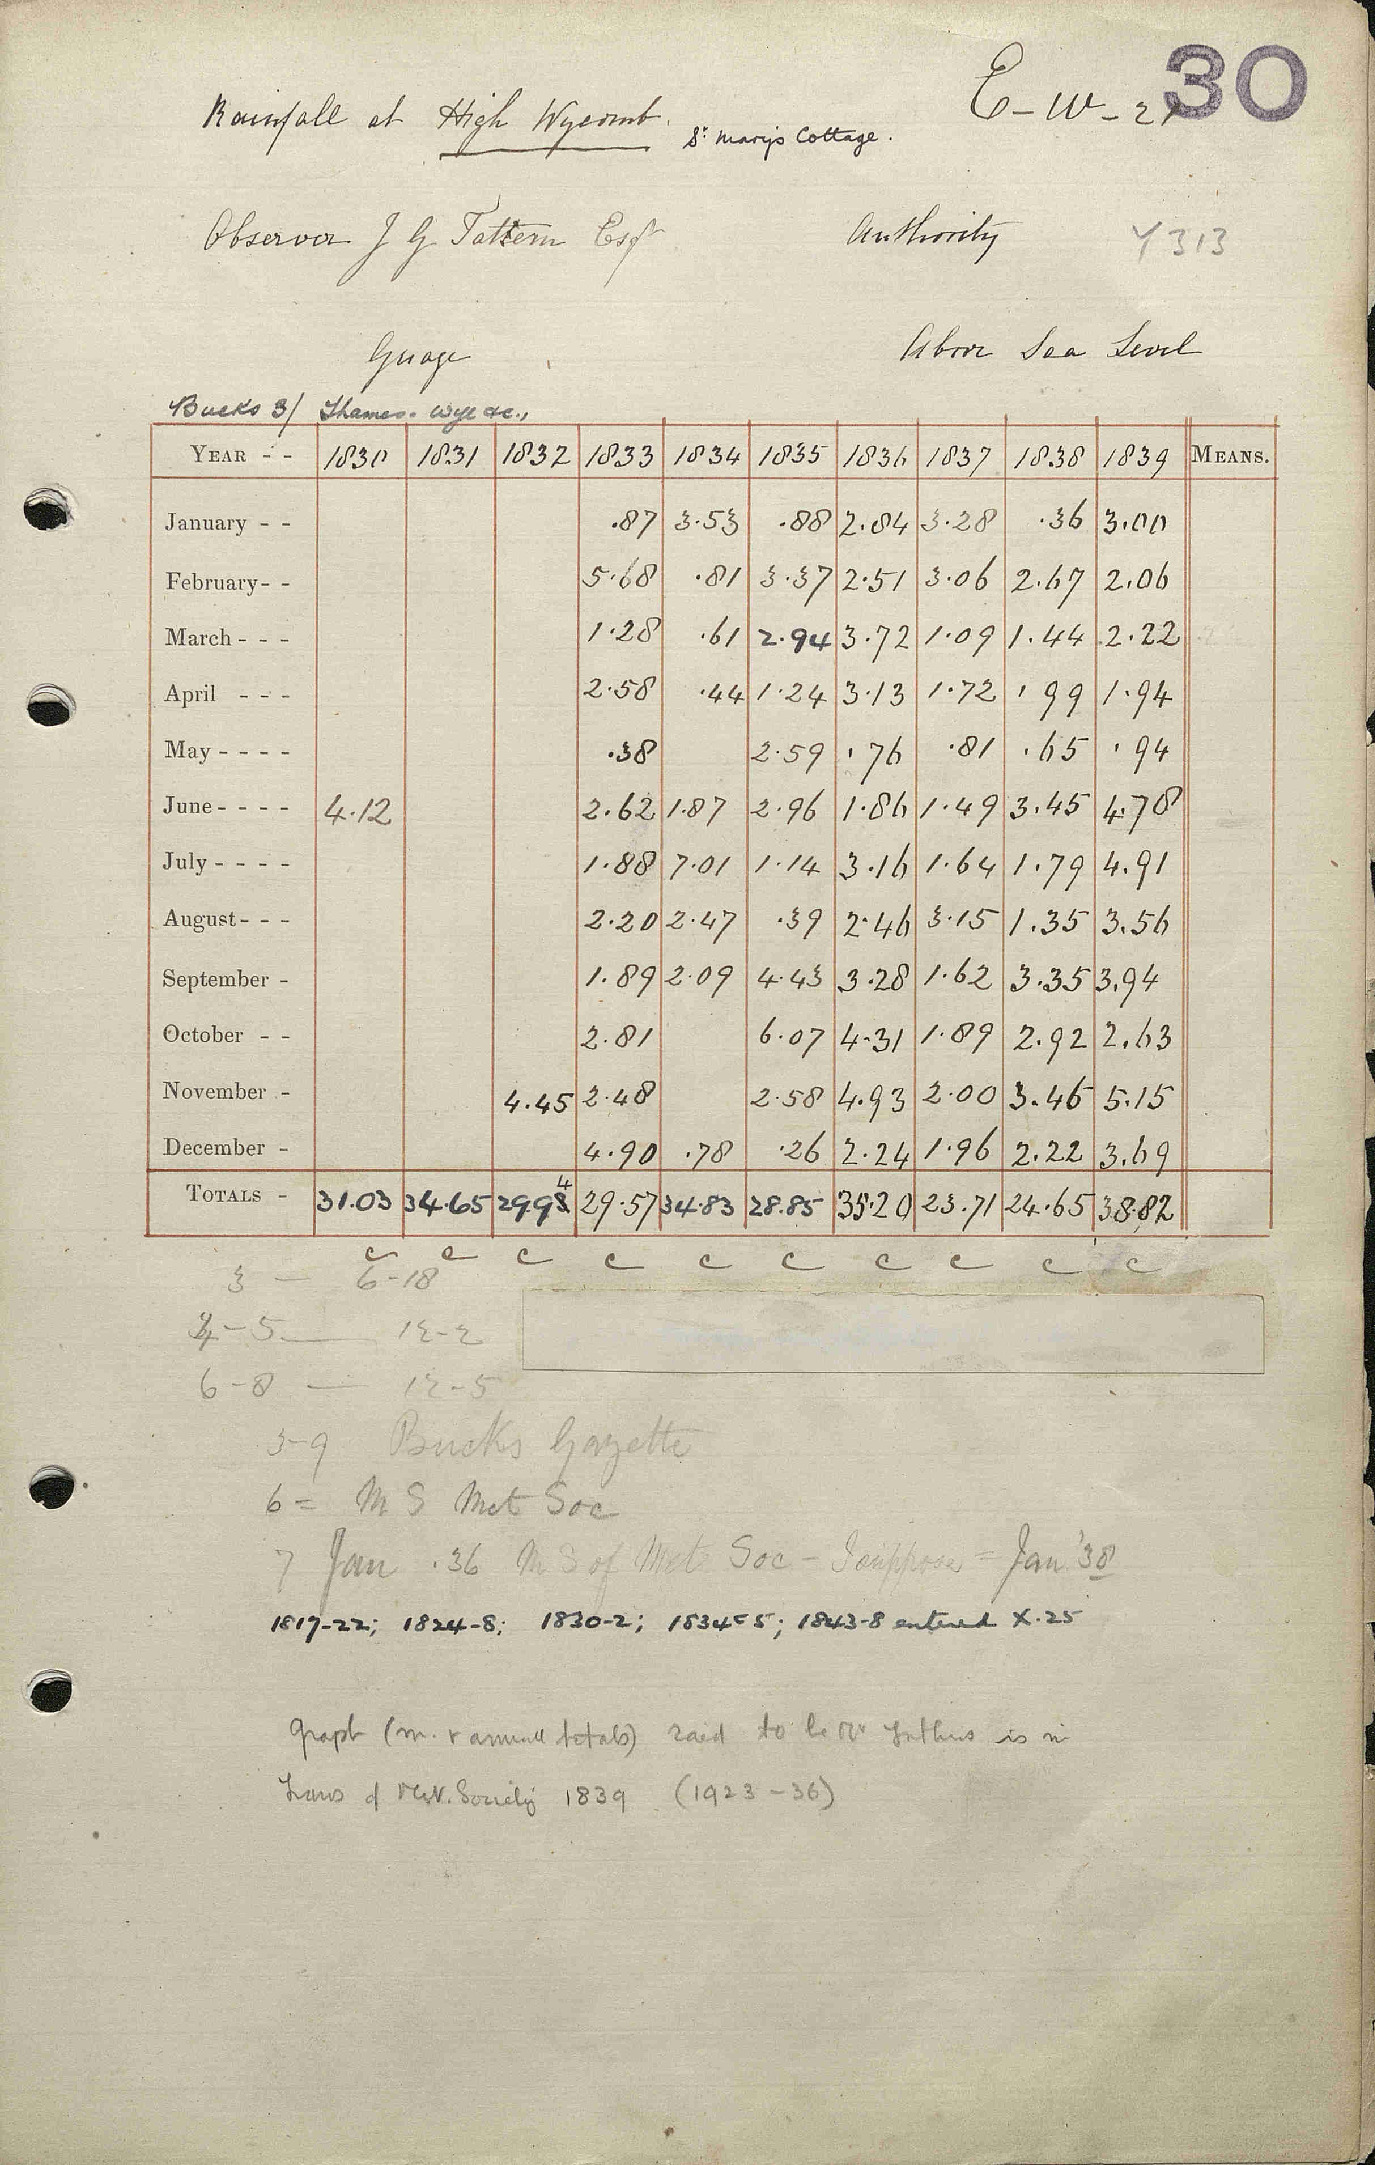 30
E-W-21
Rainfall at High Wycomb. St Mary's Cottage.
Observer J G Tattern Esqr Authority Y313
Guage Above Sea Level
Bucks 3/ Thames. Wye &c.,
YEAR - - 1830 1831 1832 1833 1834 1835 1836 1837 1838 1839 MEANS.
January - - .87 3.53 .88 2.04 3.28 .36 3.00
February - - 5.68 .81 3.37 2.51 3.06 2.67 2.06
March - - - 1.28 .61 2.94 3.72 1.09 1.44 2.22
April - - - 2.58 .44 1.24 3.13 1.72 .99 1.94
May - - - - .38 2.59 .76 .81 .65 .94
June - - - - 4.12 2.62 1.87 2.96 1.86 1.49 3.45 4.78
July - - - - 1.88 7.01 1.14 3.16 1.64 1.79 4.91
August - - - 2.20 2.47 .39 2.46 3.15 1.35 3.56
September - 1.89 2.09 4.43 3.28 1.62 3.35 3.94
October - - 2.81 6.07 4.31 1.89 2.92 2.63
November - 4.45 2.48 2.58 4.93 2.00 3.46 5.15
December - 4.90 .78 .26 2.24 1.96 2.22 3.69
TOTALS - 31.03 34.65 29.94 29.57 34.83 28.85 35.20 23.71 24.65 38.82
c c c c c c c c c c
3 — 6-18
4-5 — 12-2
6-8 — 12-5
5-9 Bucks Gazette
6 = M S Met Soc
7 Jan .36 M S of Met. Soc - I suppose = Jan '38
1817-22; 1824-8; 1830-2; 1834-5; 1843-8 entered X.25
Graph (m. & annual totals) said to be is in
Trans of Met. Society 1839 (1923-36)